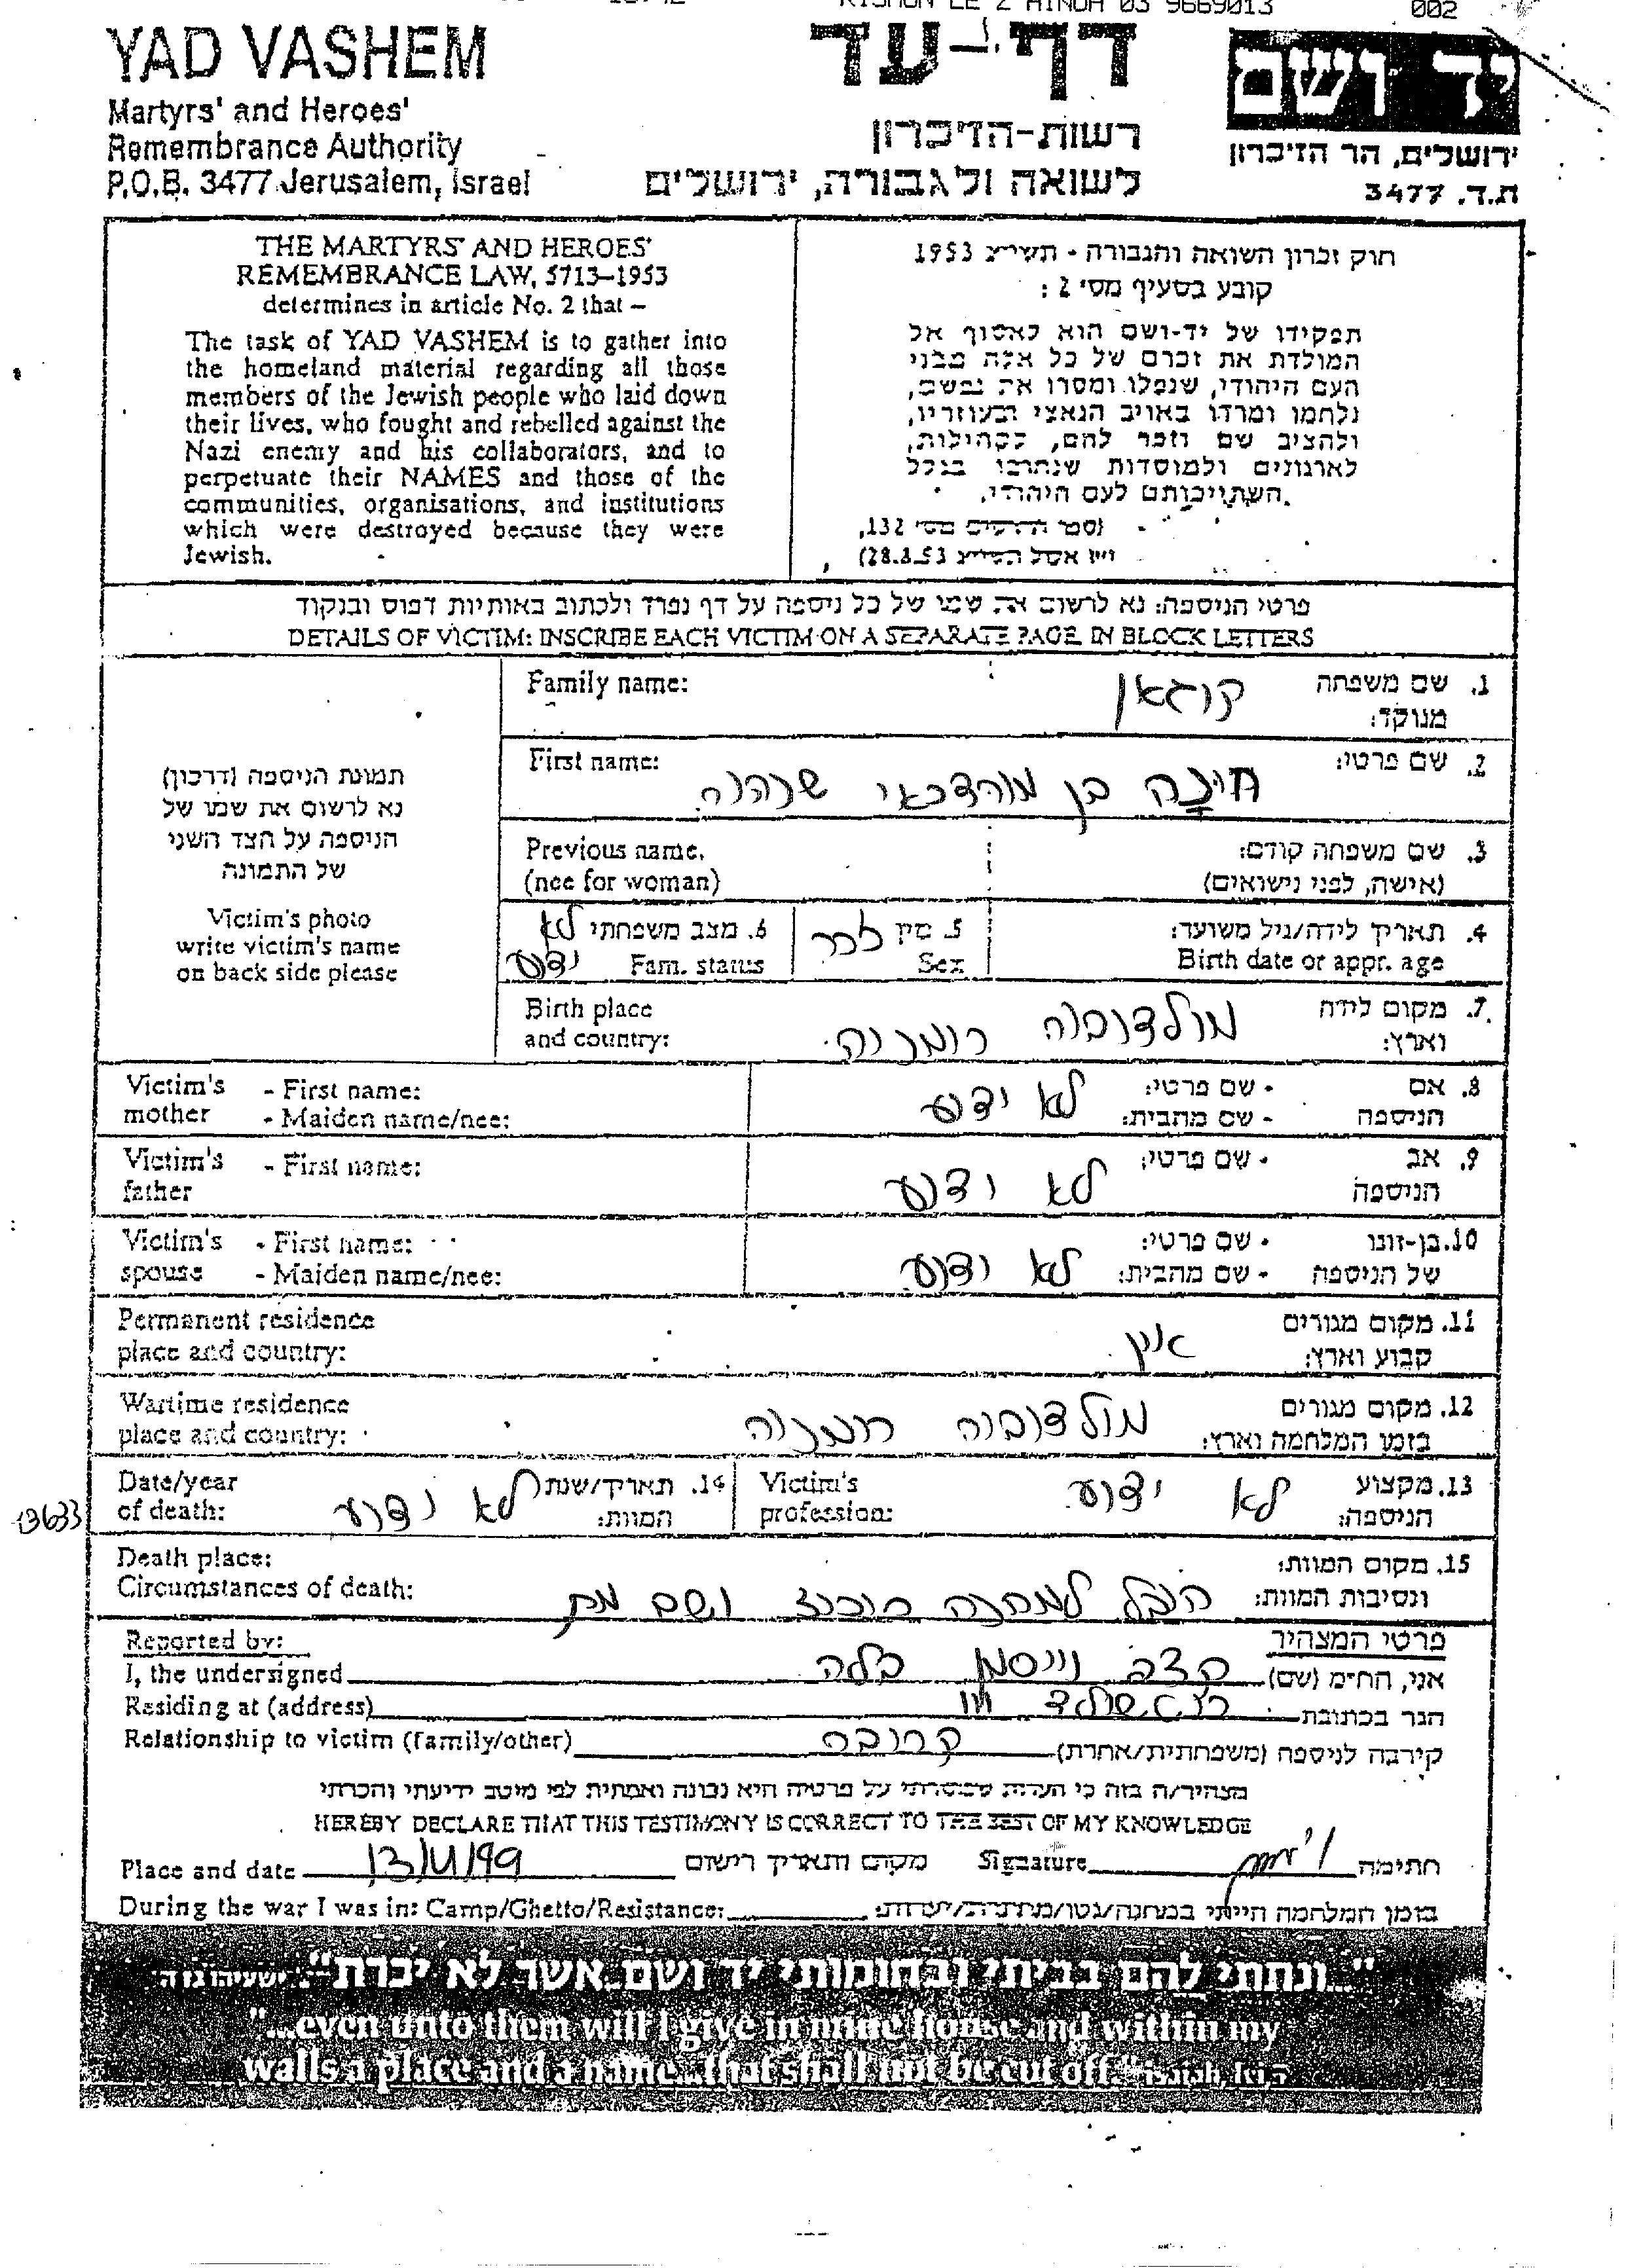 RISHON LE Z HINUH 03 9669013 002
YAD VASHEM
Martyrs' and Heroes'
Remembrance Authority
P.O.B. 3477 Jerusalem, Israel
דף-עד
רשות-הזיכרון
לשואה ולגבורה, ירושלים
יד ושם
ירושלים, הר הזיכרון
ת.ד. 3477
THE MARTYRS' AND HEROES'
REMEMBRANCE LAW, 5713–1953
determines in article No. 2 that –
The task of YAD VASHEM is to gather into
the homeland material regarding all those
members of the Jewish people who laid down
their lives, who fought and rebelled against the
Nazi enemy and his collaborators, and to
perpetuate their NAMES and those of the
communities, organisations, and institutions
which were destroyed because they were
Jewish.
חוק זכרון השואה והגבורה - תשי"ג 1953
קובע בסעיף מס' 2 :
תפקידו של יד-ושם הוא לאסוף אל
המולדת את זכרם של כל אלה מבני
העם היהודי, שנפלו ומסרו את נפשם,
נלחמו ומרדו באויב הנאצי ובעוזריו,
ולהציב שם וזכר להם, לקהילות,
לארגונים ולמוסדות שנחרבו בגלל
השתייכותם לעם היהודי.
(ספר החוקים מס' 132,
י"ז אלול תשי"ג 28.8.53)
פרטי הניספה: נא לרשום את שמו של כל ניספה על דף נפרד ולכתוב באותיות דפוס ובנקוד
DETAILS OF VICTIM: INSCRIBE EACH VICTIM ON A SEPARATE PAGE IN BLOCK LETTERS
תמונת הניספה (דרכון)
נא לרשום את שמו של
הניספה על הצד השני
של התמונה
Victim's photo
write victim's name
on back side please
Family name: קוגאן 1. שם משפחה
מנוקד:
First name: חיכה בן מורדכאי שרהוה 2. שם פרטי:
Previous name. 3. שם משפחה קודם:
(nee for woman) (אישה, לפני נישואים)
6. מצב משפחתי לא 5. מין זכר 4. תאריך לידה/גיל משוער:
ידוע Fam. status Sex Birth date or appr. age
Birth place מולדוביה רומניה 7. מקום לידה
and country: וארץ:
Victim's - First name: לא ידוע - שם פרטי: 8. אם
mother - Maiden name/nee: - שם מהבית: הניספה
Victim's - First name: לא ידוע - שם פרטי: 9. אב
father הניספה
Victim's - First name: לא ידוע - שם פרטי: 10. בן-זוגו
spouse - Maiden name/nee: - שם מהבית: של הניספה
Permanent residence 11. מקום מגורים
place and country: אין קבוע וארץ:
Wartime residence מולדוביה רומניה 12. מקום מגורים
place and country: בזמן המלחמה וארץ:
13633
Date/year לא ידוע 14. תאריך/שנת Victim's לא ידוע 13. מקצוע
of death: המוות: profession: הניספה:
Death place: 15. מקום המוות:
Circumstances of death: הובל למחנה ריכוז ושם מת ונסיבות המוות:
Reported by: פרטי המצהיר
I, the undersigned קצב וייסמן בלה אני, הח"מ (שם)
Residing at (address) הגר בכתובת
Relationship to victim (family/other) קרובה קירבה לניספה (משפחתית/אחרת)
מצהיר/ה בזה כי העדות שמסרתי על פרטיה היא נכונה ואמיתית לפי מיטב ידיעתי והכרתי
HEREBY DECLARE THAT THIS TESTIMONY IS CORRECT TO THE BEST OF MY KNOWLEDGE
Place and date 13/11/99 מקום ותאריך רישום Signature חתימה
During the war I was in: Camp/Ghetto/Resistance: בזמן המלחמה הייתי במחנה/גטו/מחתרת/יערות:
"...ונתתי להם בביתי ובחומותי יד ושם...אשר לא יכרת" ישעיהו נו ה
"...even unto them will I give in mine house and within my
walls a place and a name...that shall not be cut off." isaiah, lvi, ה